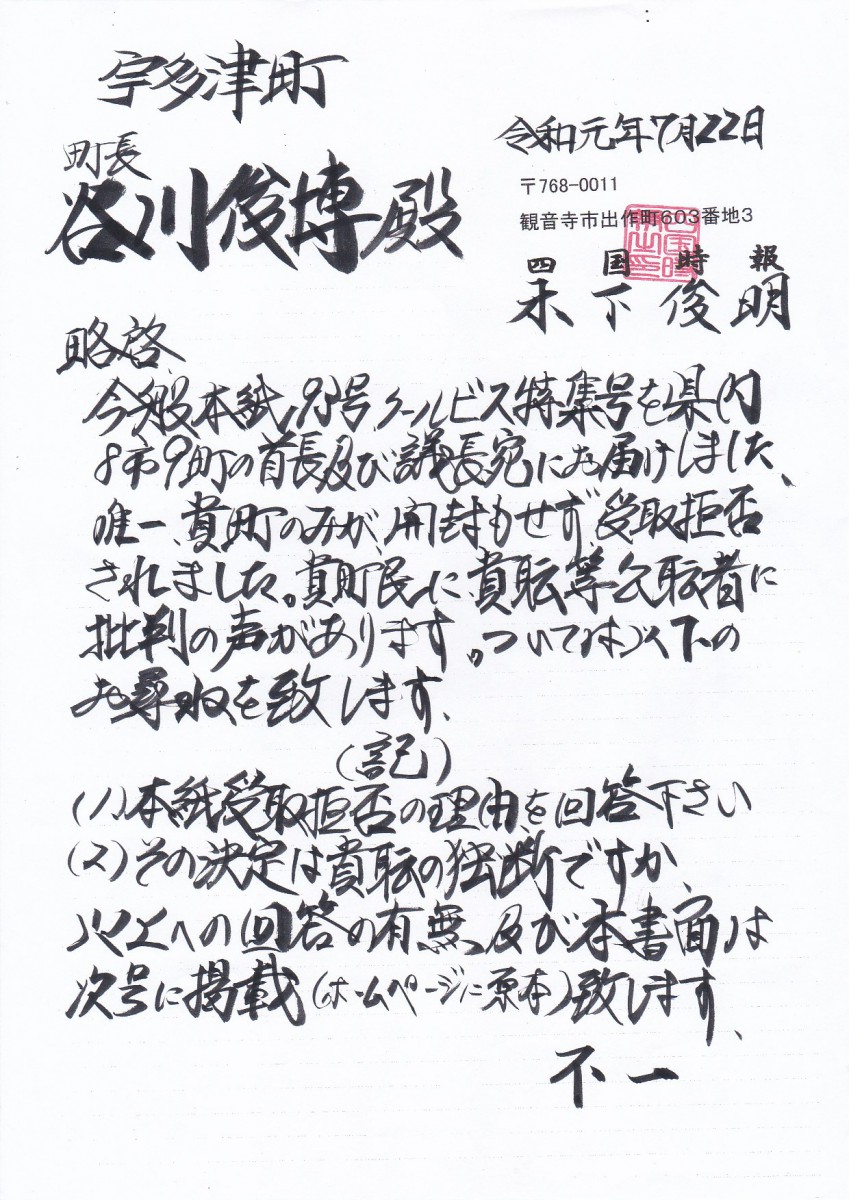 宇多津町
町長
谷川俊博殿
令和元年7月22日
〒768-0011
観音寺市出作町603番地3
四国時報
木下俊明
略啓
今般本紙、93号クールビズ特集号を県内
8市9町の首長及び議長宛にお届けしました、
唯一、貴町のみが、開封もせず、受取拒否
されました。貴町民に貴職等公職者に
批判の声があります。ついては以下の
お尋ねを致します、
(記)
(1)本紙受取拒否の理由を回答下さい
(2)その決定は貴職の独断ですか、
以上への回答の有無及び本書面は
次号に掲載(ホームページに原本)致します、
不一